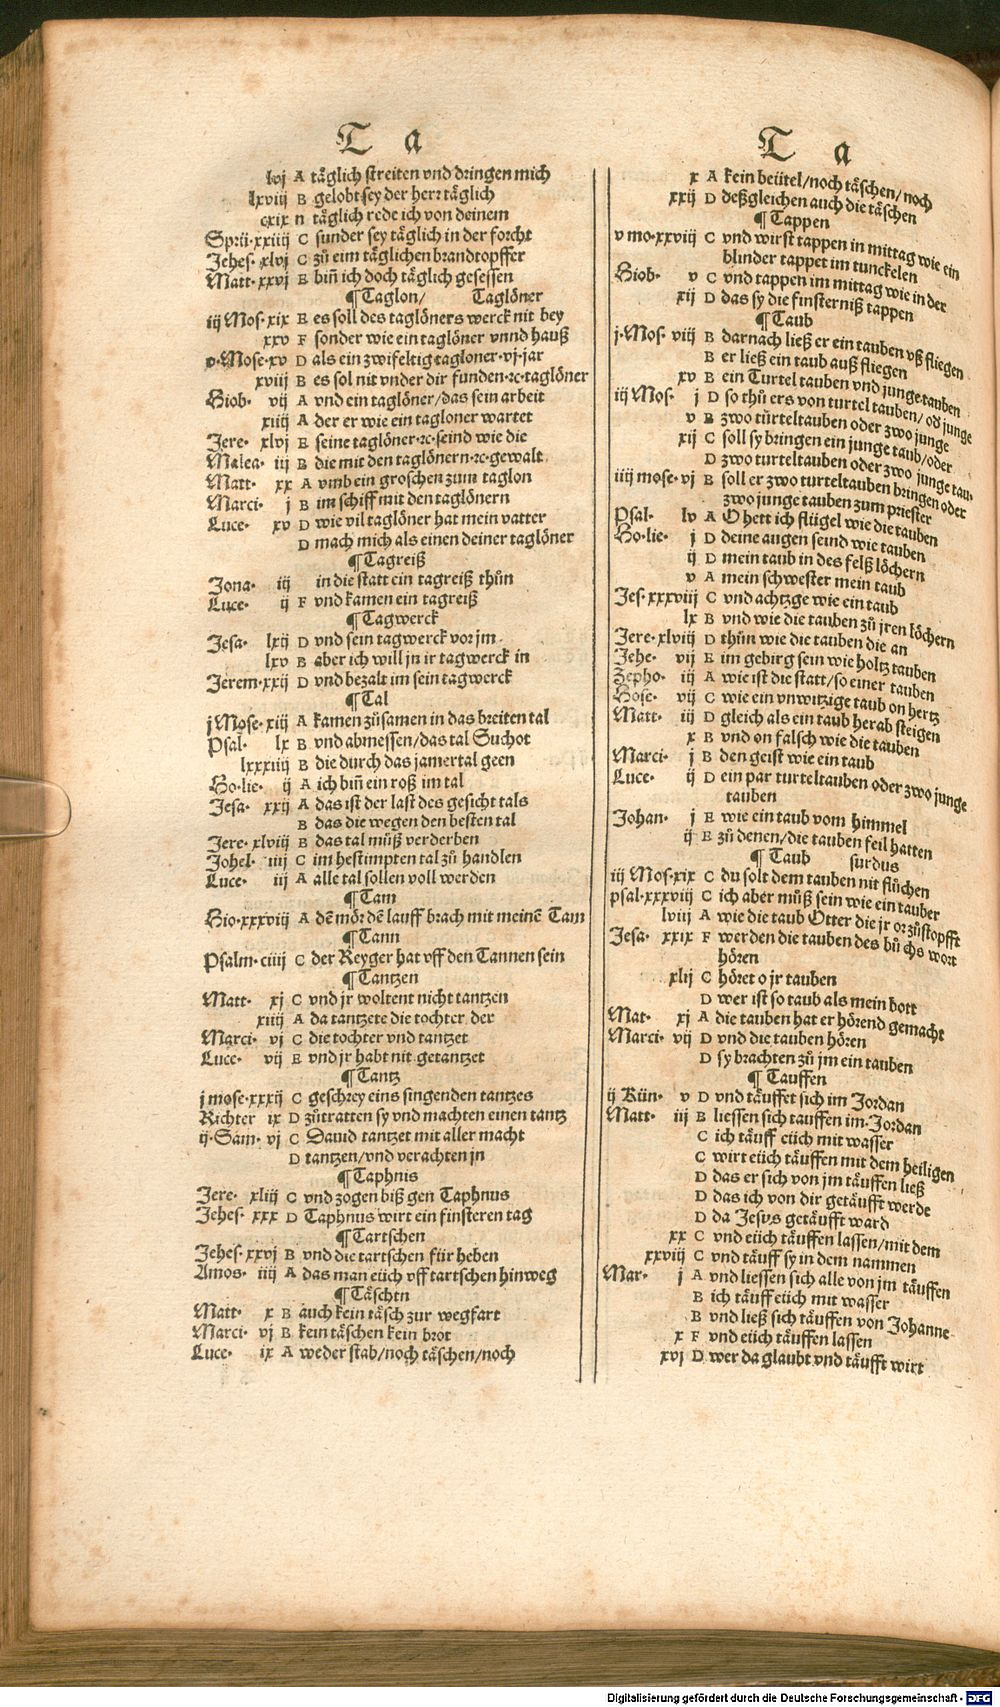 T a
lvj A täglich streiten vnd dringen mich
lxviij B gelobt sey der herr täglich
cxix n täglich rede ich von deinem
Sprü·xxiij C sunder sey täglich in der forcht
Jehes·xlvj C zů eim täglichen brandtopffer
Matt·xxvj E biñ ich doch täglich gesessen
¶Taglon/ Taglöner
iij Mos·xix E es soll des taglöners werck nit bey
xxv F sonder wie ein taglöner vnnd hauß
v·Mose·xv D als ein zwifeltig tagloner·vj·jar
xviij B es sol nit vnder dir funden·ꝛc·taglöner
Hiob· vij A vnd ein taglöner/das sein arbeit
xiiij A der er wie ein tagloner wartet
Jere· xlvj E seine taglöner·ꝛc·seind wie die
Malea· iij B die mit den taglönern·ꝛc·gewalt
Matt· xx A vmb ein groschen zum taglon
Marci· j B im schiff mit den taglönern
Luce· xv D wie vil taglöner hat mein vatter
D mach mich als einen deiner taglöner
¶Tagreiß
Jona· iij in die statt ein tagreiß thůn
Luce· ij F vnd kamen ein tagreiß
¶Tagwerck
Jesa· lxij D vnd sein tagwerck vor jm
lxv B aber ich will jn ir tagwerck in
Jerem·xxij D vnd bezalt im sein tagwerck
¶Tal
j Mose·xiij A kamen zůsamen in das breiten tal
Psal· lx B vnd abmessen/das tal Suchot
lxxxiiij B die durch das jamertal geen
Ho·lie· ij A ich biñ ein roß im tal
Jesa· xxij A das ist der last des gesicht tals
B das die wegen den besten tal
Jere·xlviij B das tal můß verderben
Johel· iiij C im bestimpten tal zů handlen
Luce· iij A alle tal sollen voll werden
¶Tam
Hio·xxxviij A dē mör dē lauff brach mit meinē Tam
¶Tann
Psalm·ciiij C der Reyger hat vff den Tannen sein
¶Tantzen
Matt· xj C vnd jr woltent nicht tantzen
xiiij A da tantzete die tochter der
Marci· vj C die tochter vnd tantzet
Luce· vij E vnd jr habt nit getantzet
¶Tantz
j mose·xxxij C geschrey eins singenden tantzes
Richter ix D zůtratten sy vnd machten einen tantz
ij·Sam· vj C Dauid tantzet mit aller macht
D tantzen/vnd verachten jn
¶Taphnis
Jere· xliij C vnd zogen biß gen Taphnus
Jehes· xxx D Taphnus wirt ein finsteren tag
¶Tartschen
Jehes·xxvj B vnd die tartschen für heben
Amos· iiij A das man eüch vff tartschen hinweg
¶Täschtn
Matt· x B auch kein täsch zur wegfart
Marci· vj B kein täschen kein brot
Luce· ix A weder stab/noch täschen/noch
T a
x A kein beütel/noch täschen/noch
xxij D deßgleichen auch die täschen
¶Tappen
v mo·xxviij C vnd wirst tappen in mittag wie ein
blinder tappet im tunckelen
Hiob· v C vnd tappen im mittag wie in der
xij D das sy die finsterniß tappen
¶Taub
j·Mos· viij B darnach ließ er ein tauben vß fliegen
B er ließ ein taub auß fliegen
xv B ein Turtel tauben vnd junge tauben
iij Mos· j D so thů ers von turtel tauben/ od junge
v B zwo türteltauben oder zwo junge
xij C soll sy bringen ein junge taub/oder
D zwo turteltauben oder zwo junge tau
iiij mose·vj B soll er zwo turteltauben bringen oder
zwo junge tauben zum priester
Psal· lv A O hett ich flügel wie die tauben
Ho·lie· j D deine augen seind wie tauben
ij D mein taub in des felß löchern
v A mein schwester mein taub
Jes·xxxviij C vnd achtzge wie ein taub
lx B vnd wie die tauben zů jren löchern
Jere·xlviij D thůn wie die tauben die an
Jehe· vij E im gebirg sein wie holtz tauben
Zepho· iij A wie ist die statt/so einer tauben
Hose· vij C wie ein vnwitzige taub on hertz
Matt· iij D gleich als ein taub herab steigen
x B vnd on falsch wie die tauben
Marci· j B den geist wie ein taub
Luce· ij D ein par turteltauben oder zwo junge
tauben
Johan· j E wie ein taub vom himmel
ij E zů denen/die tauben feil hatten
¶Taub surdus
iij Mos·xix C du solt dem tauben nit flůchen
psal·xxxviij C ich aber můß sein wie ein tauber
lviij A wie die taub Otter die jr or zůstopfft
Jesa· xxix F werden die tauben des bůchs wort
hören
xlij C höret o jr tauben
D wer ist so taub als mein bott
Mat· xj A die tauben hat er hörend gemacht
Marci· vij D vnd die tauben hören
D sy brachten zů jm ein tauben
¶Tauffen
ij Kün· v D vnd täuffet sich im Jordan
Matt· iij B liessen sich tauffen im·Jordan
C ich täuff eüch mit wasser
C wirt eüch täuffen mit dem heiligen
D das er sich von jm täuffen ließ
D das ich von dir getäufft werde
D da Jesus getäufft ward
xx C vnd eüch täuffen lassen/mit dem
xxviij C vnd täuff sy in dem nammen
Mar· j A vnd liessen sich alle von jm täuffen
B ich täuff eüch mit wasser
B vnd ließ sich täuffen von Johanne
x F vnd eüch täuffen lassen
xvj D wer da glaubt vnd täufft wirt
Digitalisierung gefördert durch die Deutsche Forschungsgemeinschaft - DFG